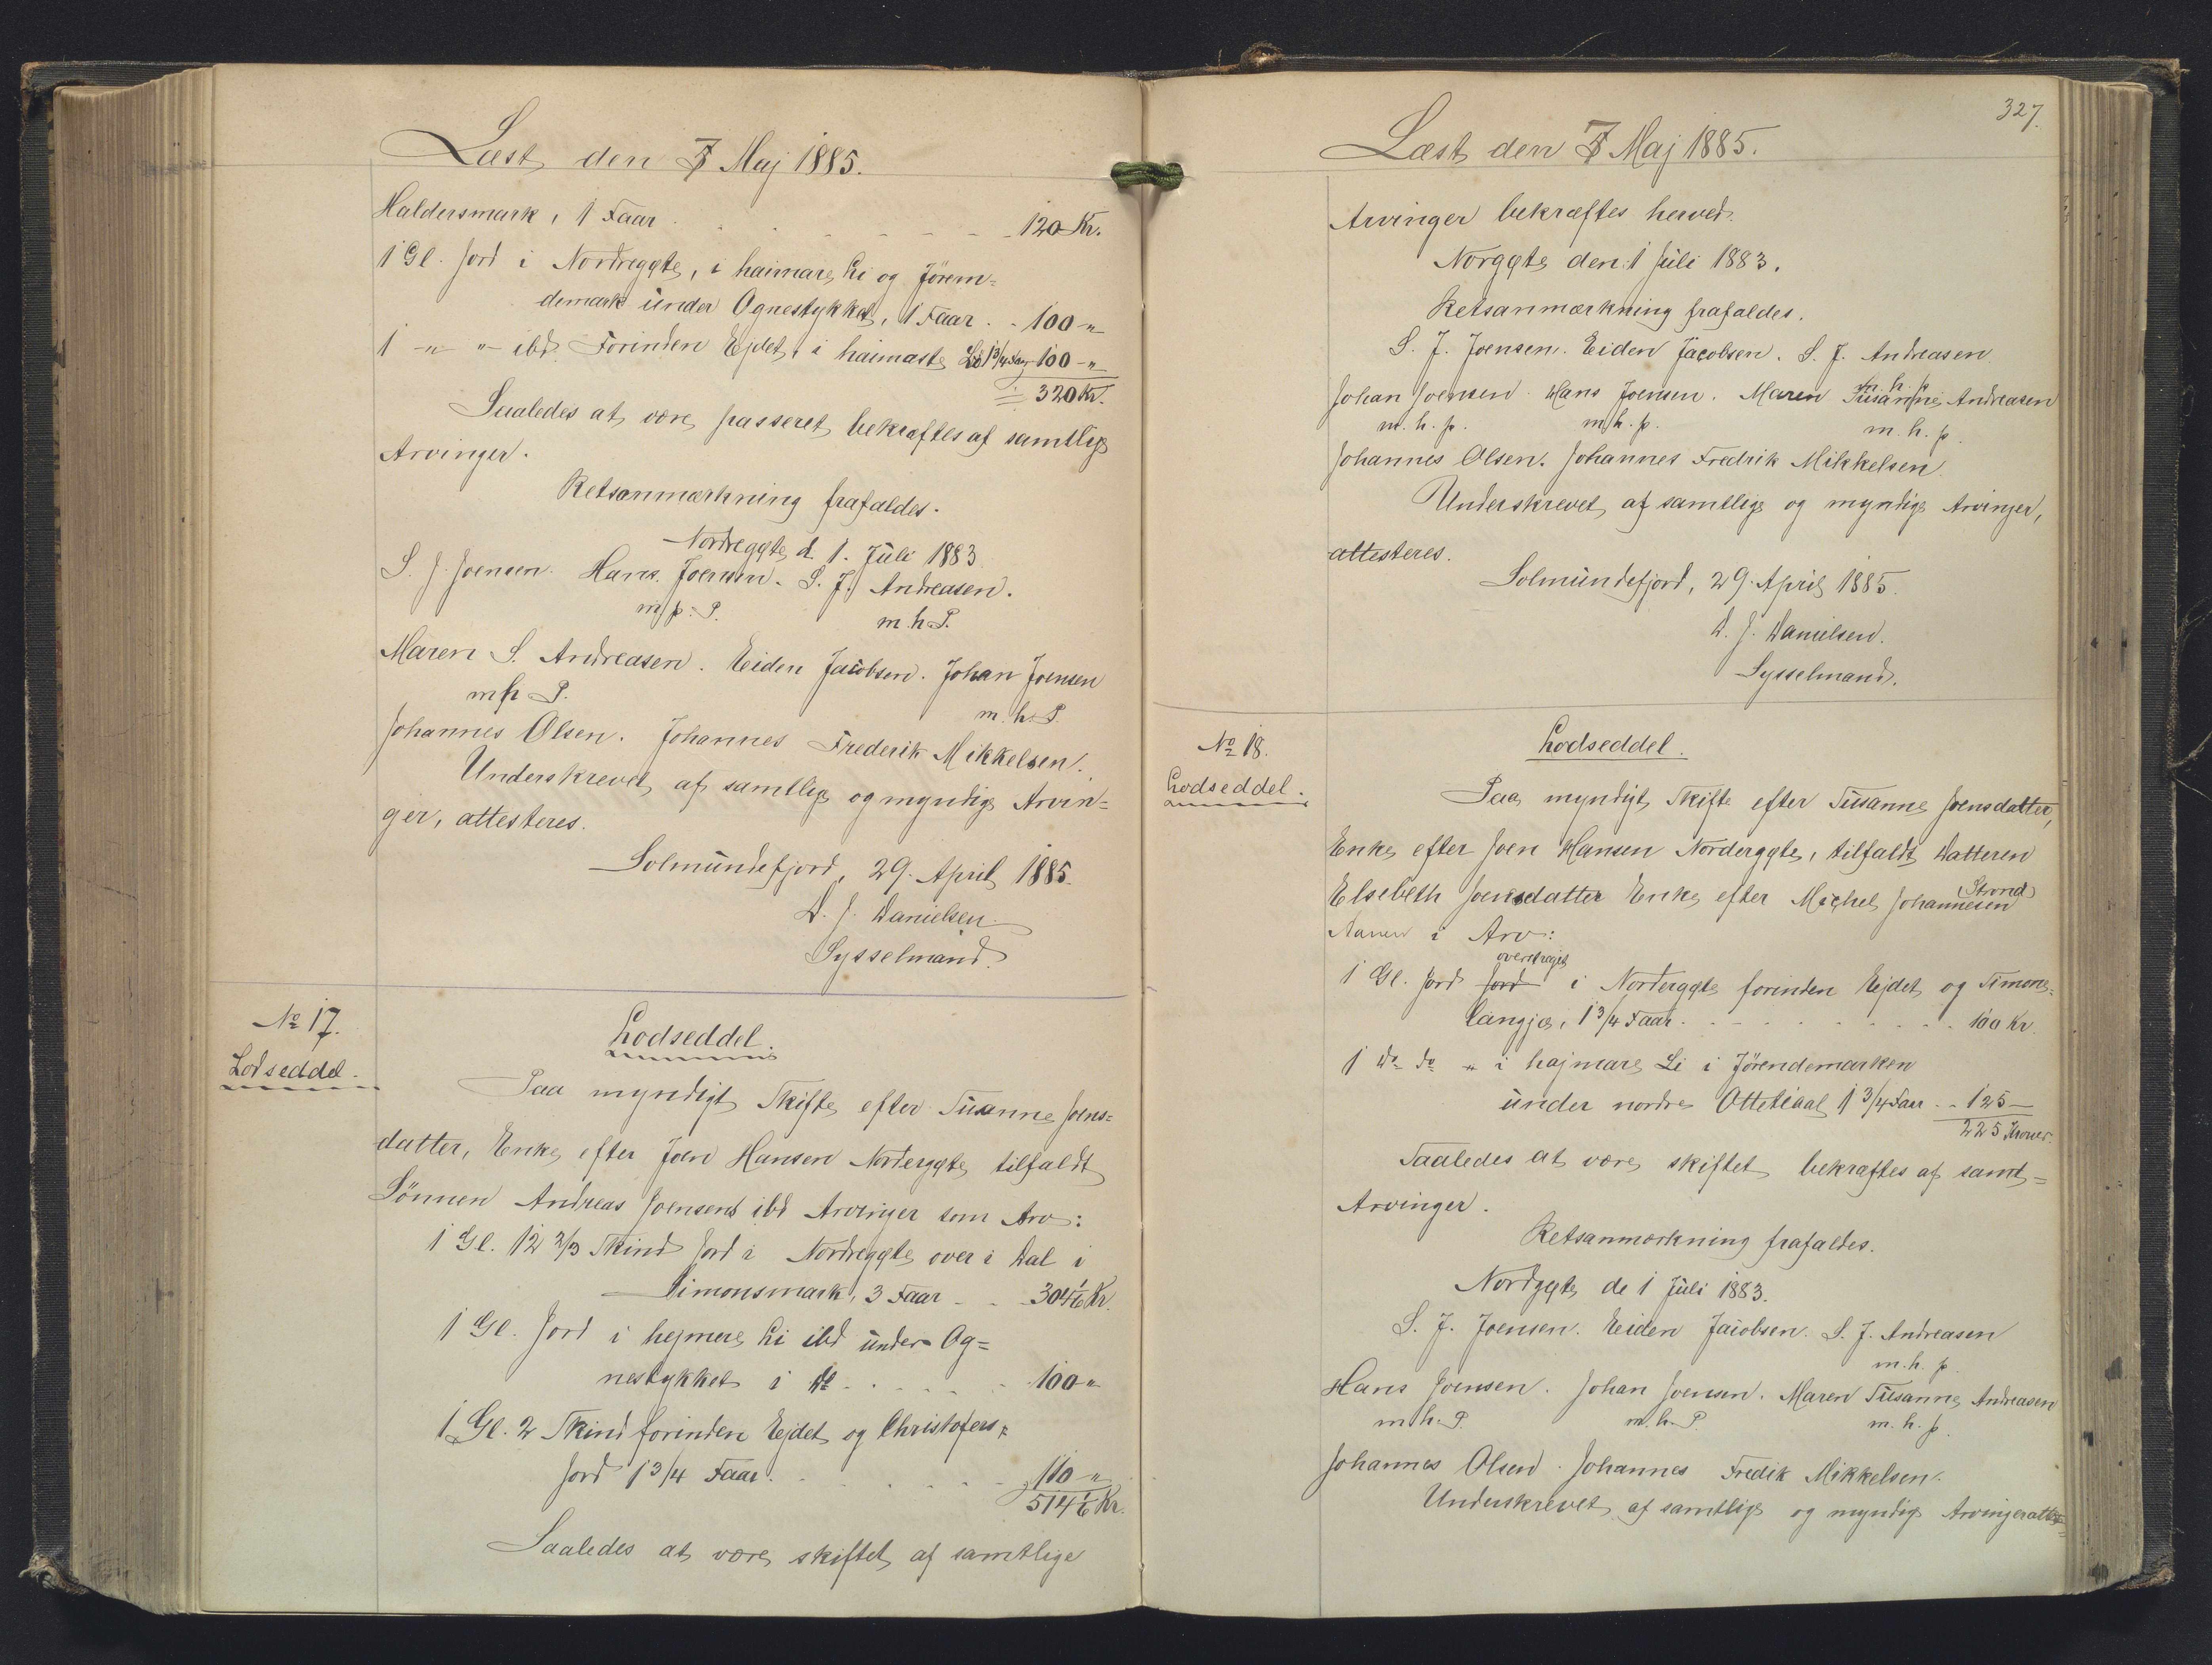 Læst den 7 Maj 1885.
Haldersmark, 1 Faar 120 Kr.
1 Gl. Jord i Nordregøte, i haimare Li og Jörem=
demark under Ognestykket, 1 Faar . . 100 -"
1 -" " ibd. Forinden Ejdet, i haimaste Li 1 3/4 Faar 100 -"
320 Kr.
Saaledes at være passeret bekræftes af samtlige
Arvinger.
Retsanmærkning frafaldes.
Nordregøte d. 1. Juli 1883
S. J. Joensen. Hans Joensen. S. J. Andreasen.
m. h. P.
Maren S. Andreasen. Eiden Jacobsen. Johan Joensen
m h P. m. h. P.
Johannes Olsen. Johannes Frederik Mikkelsen.
Underskrevet af samtlige og myndige Arvin=
ger, attesteres.
Solmundefjord, 29. April 1885.
D. J. Danielsen.
Sysselmand.
No 17. Lodseddel.
Lodseddel.
Paa myndigt Skifte efter Susanne Joens=
datter, Enke efter Joen Hansen Nordergøte, tilfaldt
Sönnen Andreas Joensens ibd Arvinger som Arv:
1 Gl. 12 2/3 Skind Jord i Nordregøte over i Dal i
Simonsmark, 3 Faar . . 304 1/6 Kr.
1 Gl. Jord i hejmere Li ibd under Og=
nestykket i Do . . 100 "
1 Gl. 2 Skind forinden Ejdet og Christofers=
Jord 1 3/4 Faar . . 110 "
514 1/6 Kr.
Saaledes at være skiftet af samtlige
327.
Læst den 7 Maj 1885.
Arvinger bekræftes herved.
Norgøte den 1 Juli 1883.
Retsanmærkning frafaldes.
S. J. Joensen. Eiden Jacobsen. S. J. Andreasen
m. h. p.
Johan Joensen. Hans Joensen. Maren Susanne Andreasen
m. h. p. m. h. p. m. h. p.
Johannes Olsen. Johannes Fredrik Mikkelsen.
Underskrevet af samtlige og myndige Arvinger,
attesteres.
Solmundefjord, 29. April 1885.
D. J. Danielsen.
Sysselmand.
No 18. Lodseddel.
Lodseddel.
Paa myndigt Skifte efter Susanne Joensdatter,
Enke efter Joen Hansen Nordergøte, tilfaldt Datteren
Elsebeth Joensdatter Enke efter Michel Johannesen (Strond)
i Arv:
overdraget
1 Gl. Jord Jord i Nordergøte forinden Ejdet og Simons=
langja, 1 3/4 Faar . . 100 Kr.
1 Do do " i hajmare Li i Jörendemarken
under nordre Ottetiaal 1 3/4 Faar . . 125 —
225 Kroner.
Saaledes at være skiftet bekræftes af samt=
Arvinger.
Retsanmærkning frafaldes.
Nordgøte de 1 Juli 1883.
S. J. Joensen. Eiden Jacobsen. S. J. Andreasen
m. h. p.
Hans Joensen. Johan Joensen. Maren Susanne Andreasen
m. h. P. m. h. P. m. h. p.
Johannes Olsen. Johannes Fredik Mikkelsen.
Underskrevet af samtlige og myndige Arvinger attes=